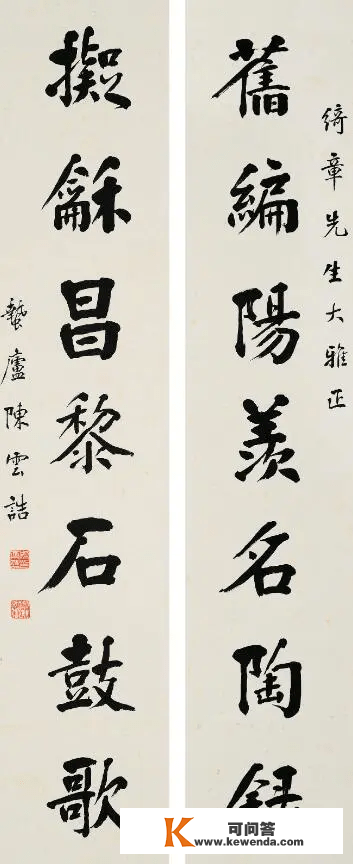 綺章先生大雅正
舊編陽羨名陶錄
擬龢昌黎石鼓歌
蟄廬陳雲誥
K 可问答
www.kewenda.com